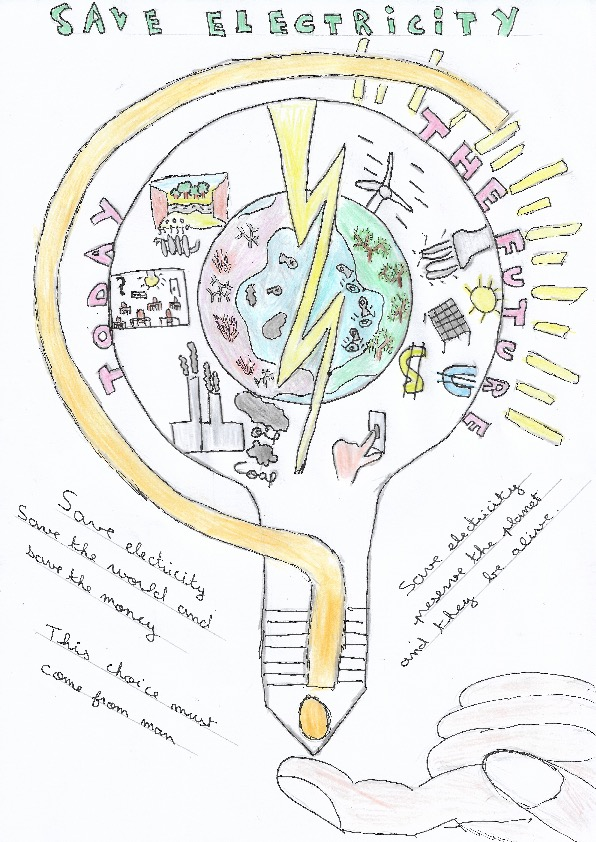 SAVE ELECTRiCiTY
TODAY
THE FUTURE
?
$ €
Save electricity
Save the world and
save the money
This choice must
come from man
Save electricity
preserve the planet
and they be alive.